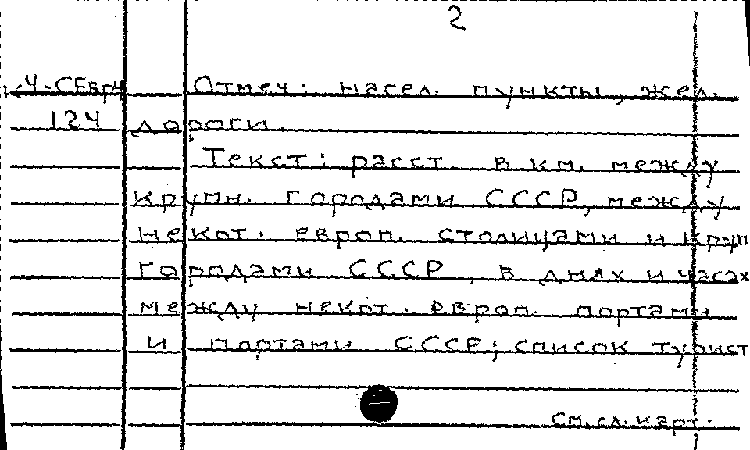 2
Ч-СЕвр/Ч Отмеч: насел. пункты, жел.
124 дороги.
Текст: расст. в км. между
крупн. городами СССР, между
некот. европ. столицами и круп
городами СССР, в днях и часах
между некот. европ. портами
и портами СССР; список турист
См. сл. карт.